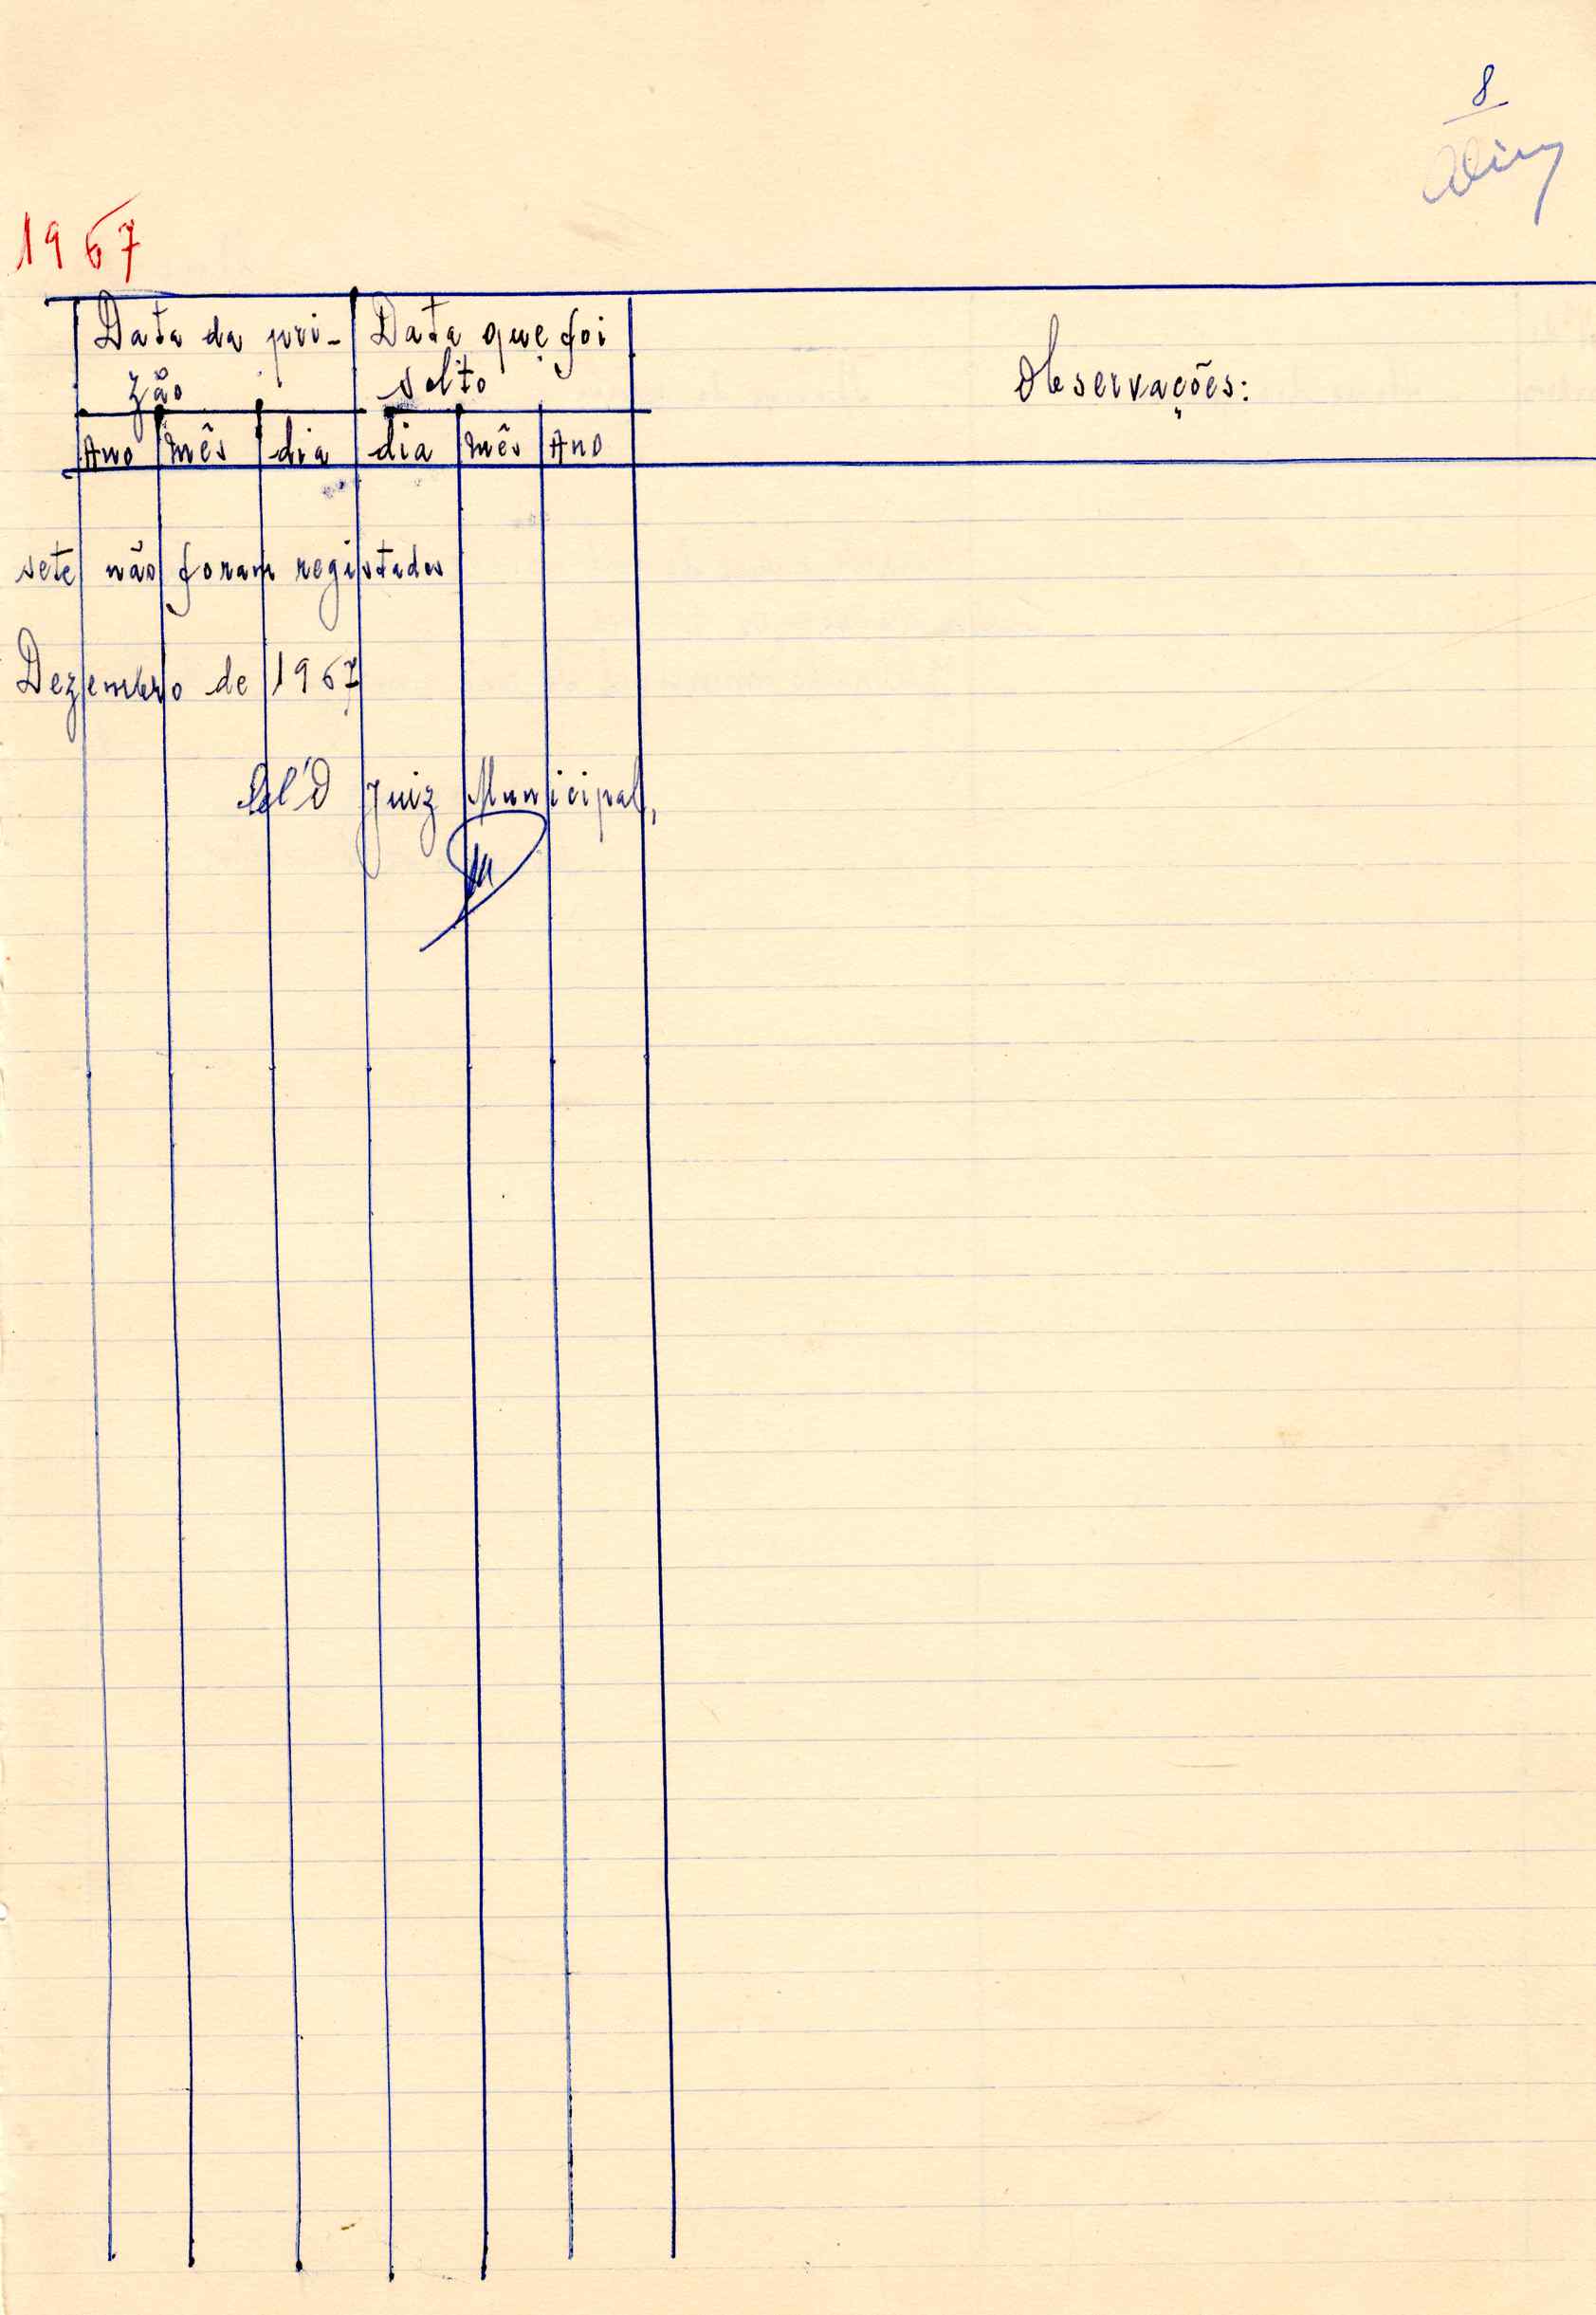 8
1967
Data da pri- Data que foi
zão solto
Observações:
Ano mês dia dia mês Ano
sete não foram registados
Dezembro de 1967
O Juiz Municipal,